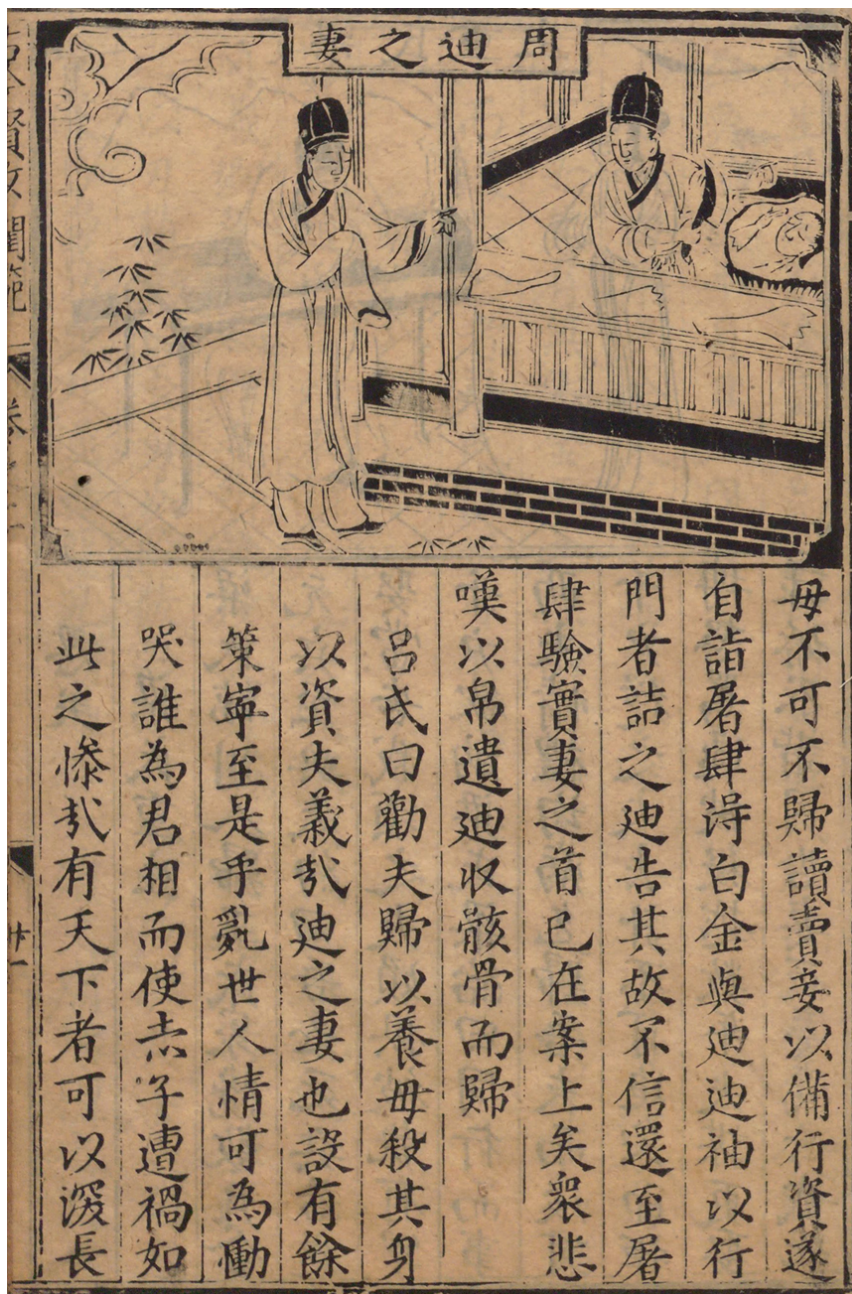 周迪之妻
母不可不歸讀賣妾以備行資遂
自詣屠肆淂白金與迪迪袖以行
門者詰之迪告其故不信還至屠
肆驗實妻之首已在案上矣衆悲
嘆以帛遺迪收骸骨而歸
吕氏曰勸夫歸以養母殺其身
以資夫義㢤迪之妻也設有餘
策寧至是乎亂世人情可為慟
哭誰為君相而使赤子遭禍如
此之慘㢤有天下者可以深長
賢女閨範
卷之二
廿一